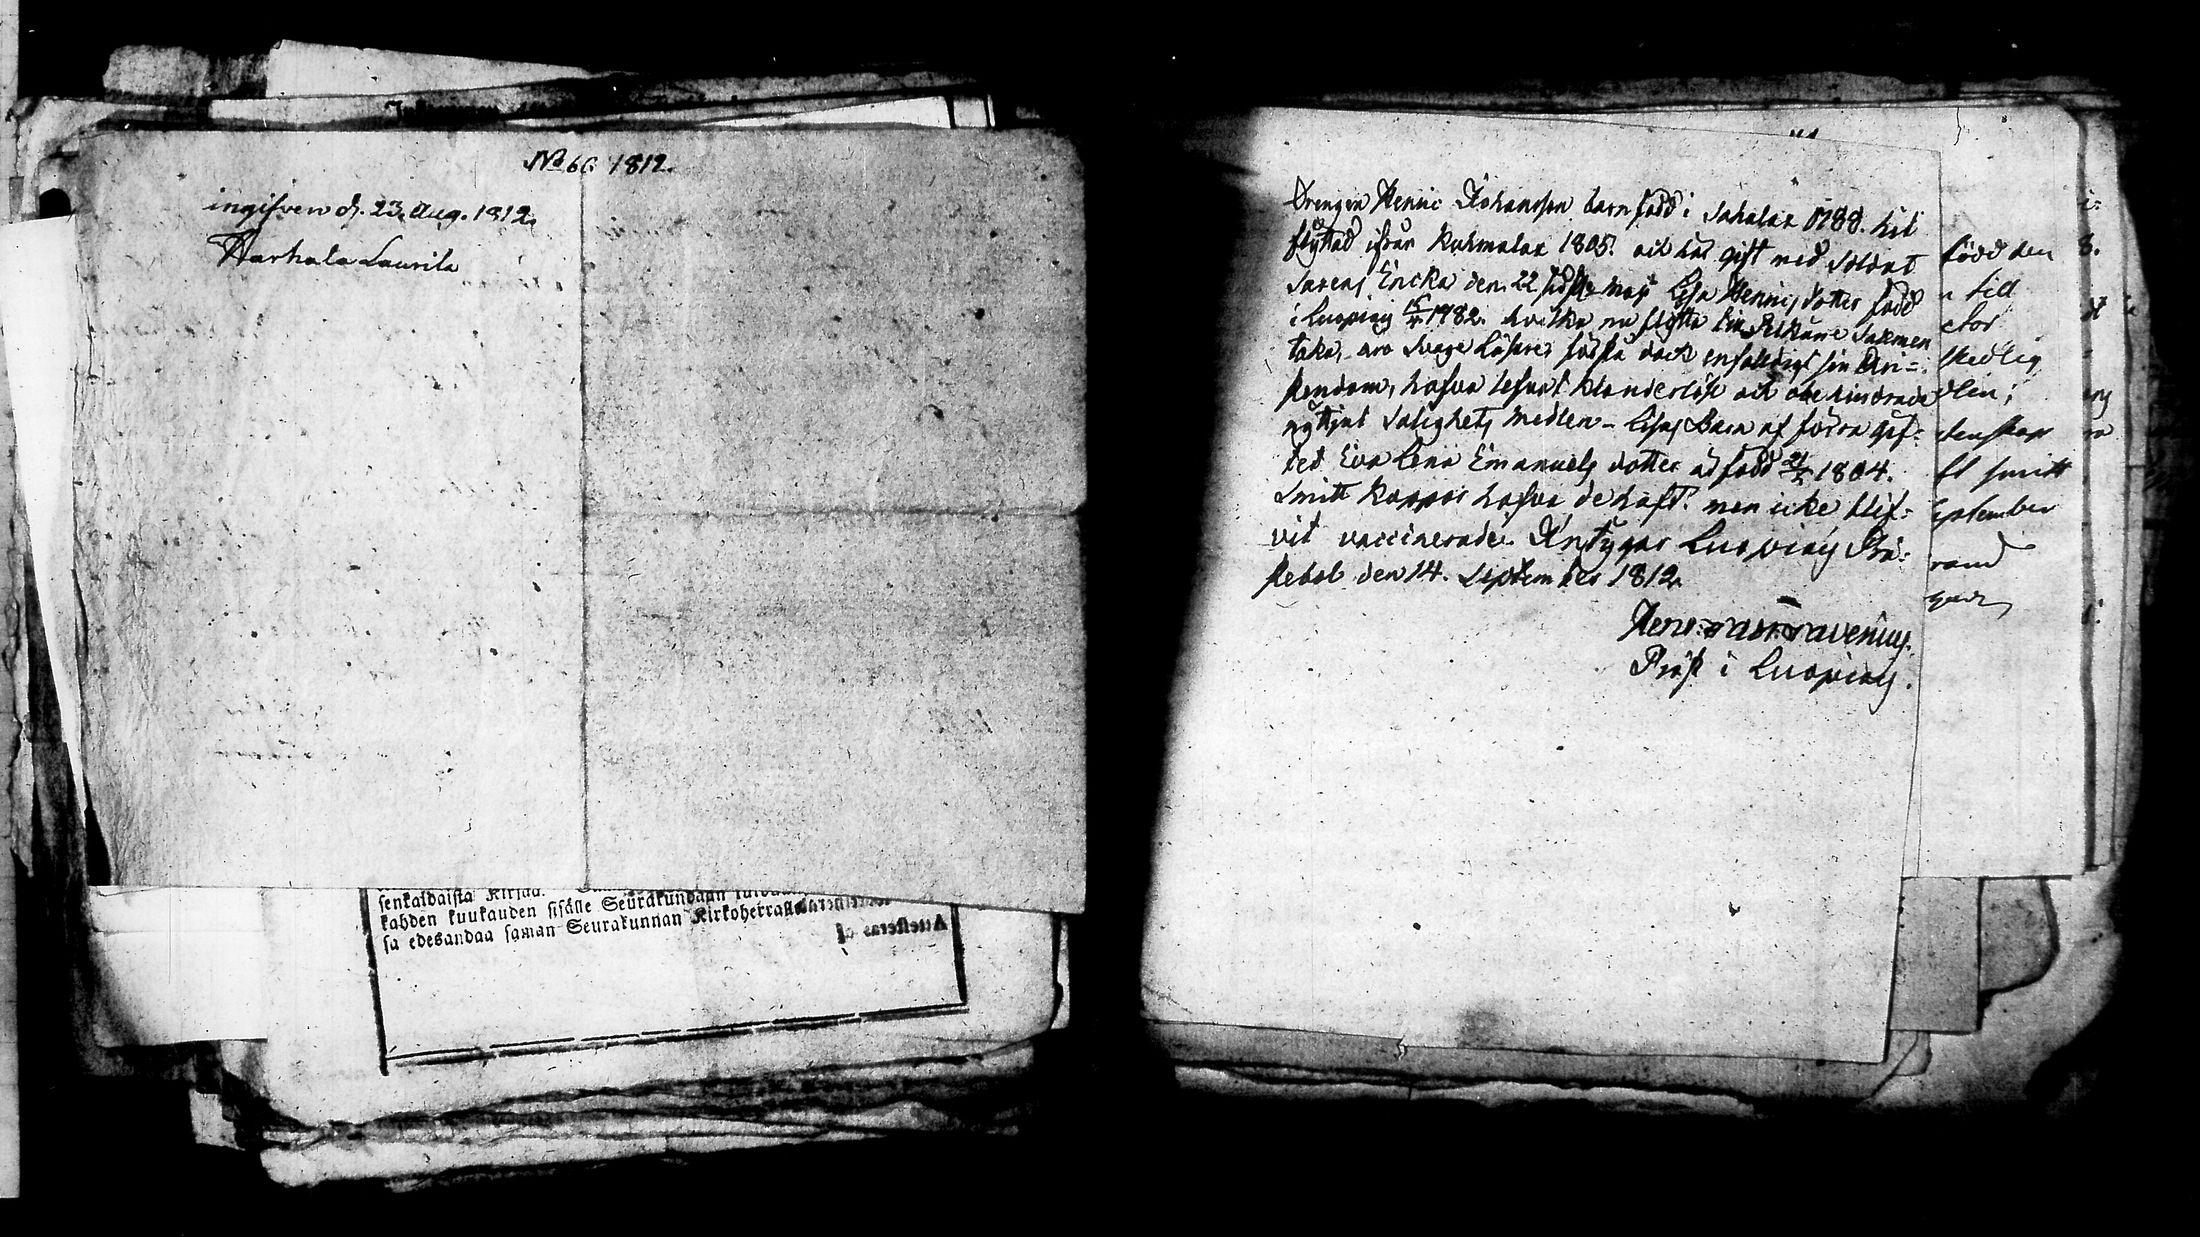 No 60 1812.
ingifven d. 23. Aug. 1812.
Harhala Laurila
senkaldaista Kirjaa.
kahden kuukauden sisälle Seurakundaan
sa edesandaa saman Seurakunnan Kirkoherralle
Attesteras af
Drengen Henric Johansson barnfödd i Sahalax 1788. hit
flyttad ifrån Kuhmalax 1805. och har gift med Soldat
Enka den 22 sistl. Maji Lisa Henrics dotter född
i Luopiois 1782. hvilka nu flytta till Pelkäne Salmen
taka, äro svage Läsare, förstå dock enfaldigt sin Chri-
stendom, hafva lefvat klanderlöst och obehindrade
nyttjat Salighets medlen - Lisas Barn af förra gif-
tet Eva Lena Emanuels dotter är född 1804.
Smitt Koppor hafva de haft. men icke blif-
vit vaccinerade. Intygar Luopiois Prä-
stebol den 14. September 1812.
Henr.
Präst i Luopiois.
född den
till
skedlig
smitt
September